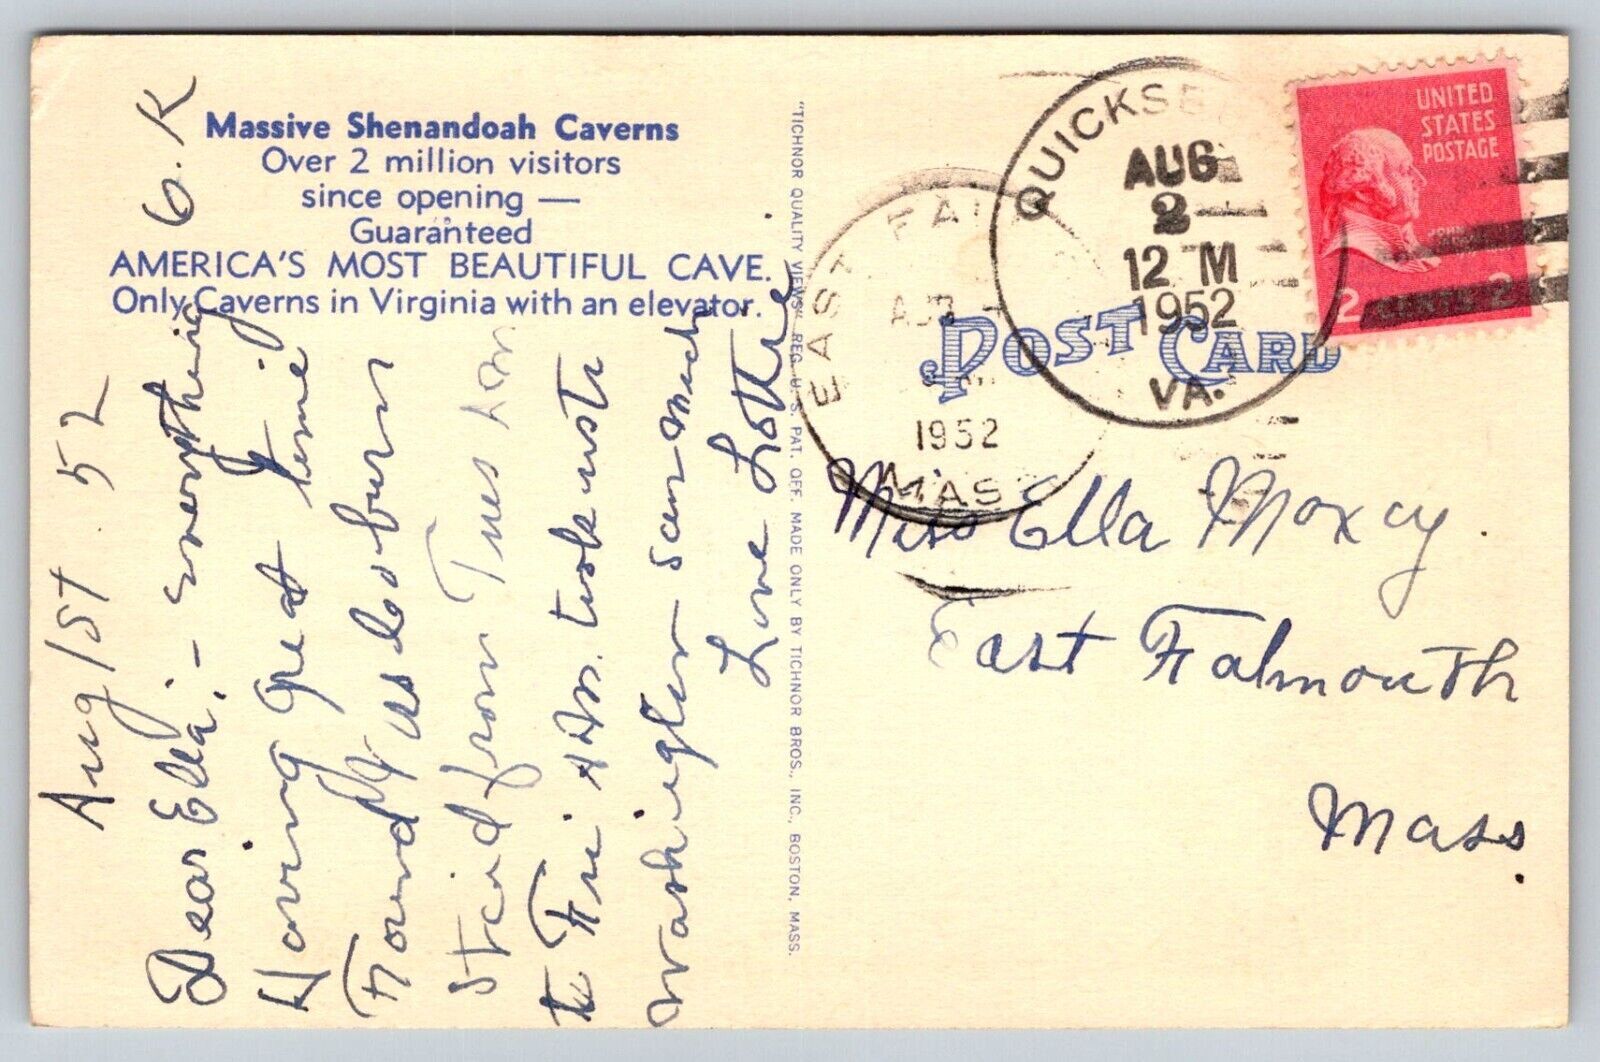 Massive Shenandoah Caverns
Over 2 million visitors
since opening —
Guaranteed
AMERICA'S MOST BEAUTIFUL CAVE.
Only Caverns in Virginia with an elevator.
Aug 1st 52
Dear Ella:- everything O.K
Having great time
Found
Staid from Tues
to Fri
Washington saw much
Love Lottie
"TICHNOR QUALITY VIEWS" REG. U. S. PAT. OFF. MADE ONLY BY TICHNOR BROS., INC., BOSTON, MASS.
EAST FAL
1952
MASS
QUICKSB
AUG
2
12 M
1952
VA.
UNITED
STATES
POSTAGE
JOHN
2 CENTS 2
POST CARD
Miss Ella Moxcy.
East Falmouth
Mass.